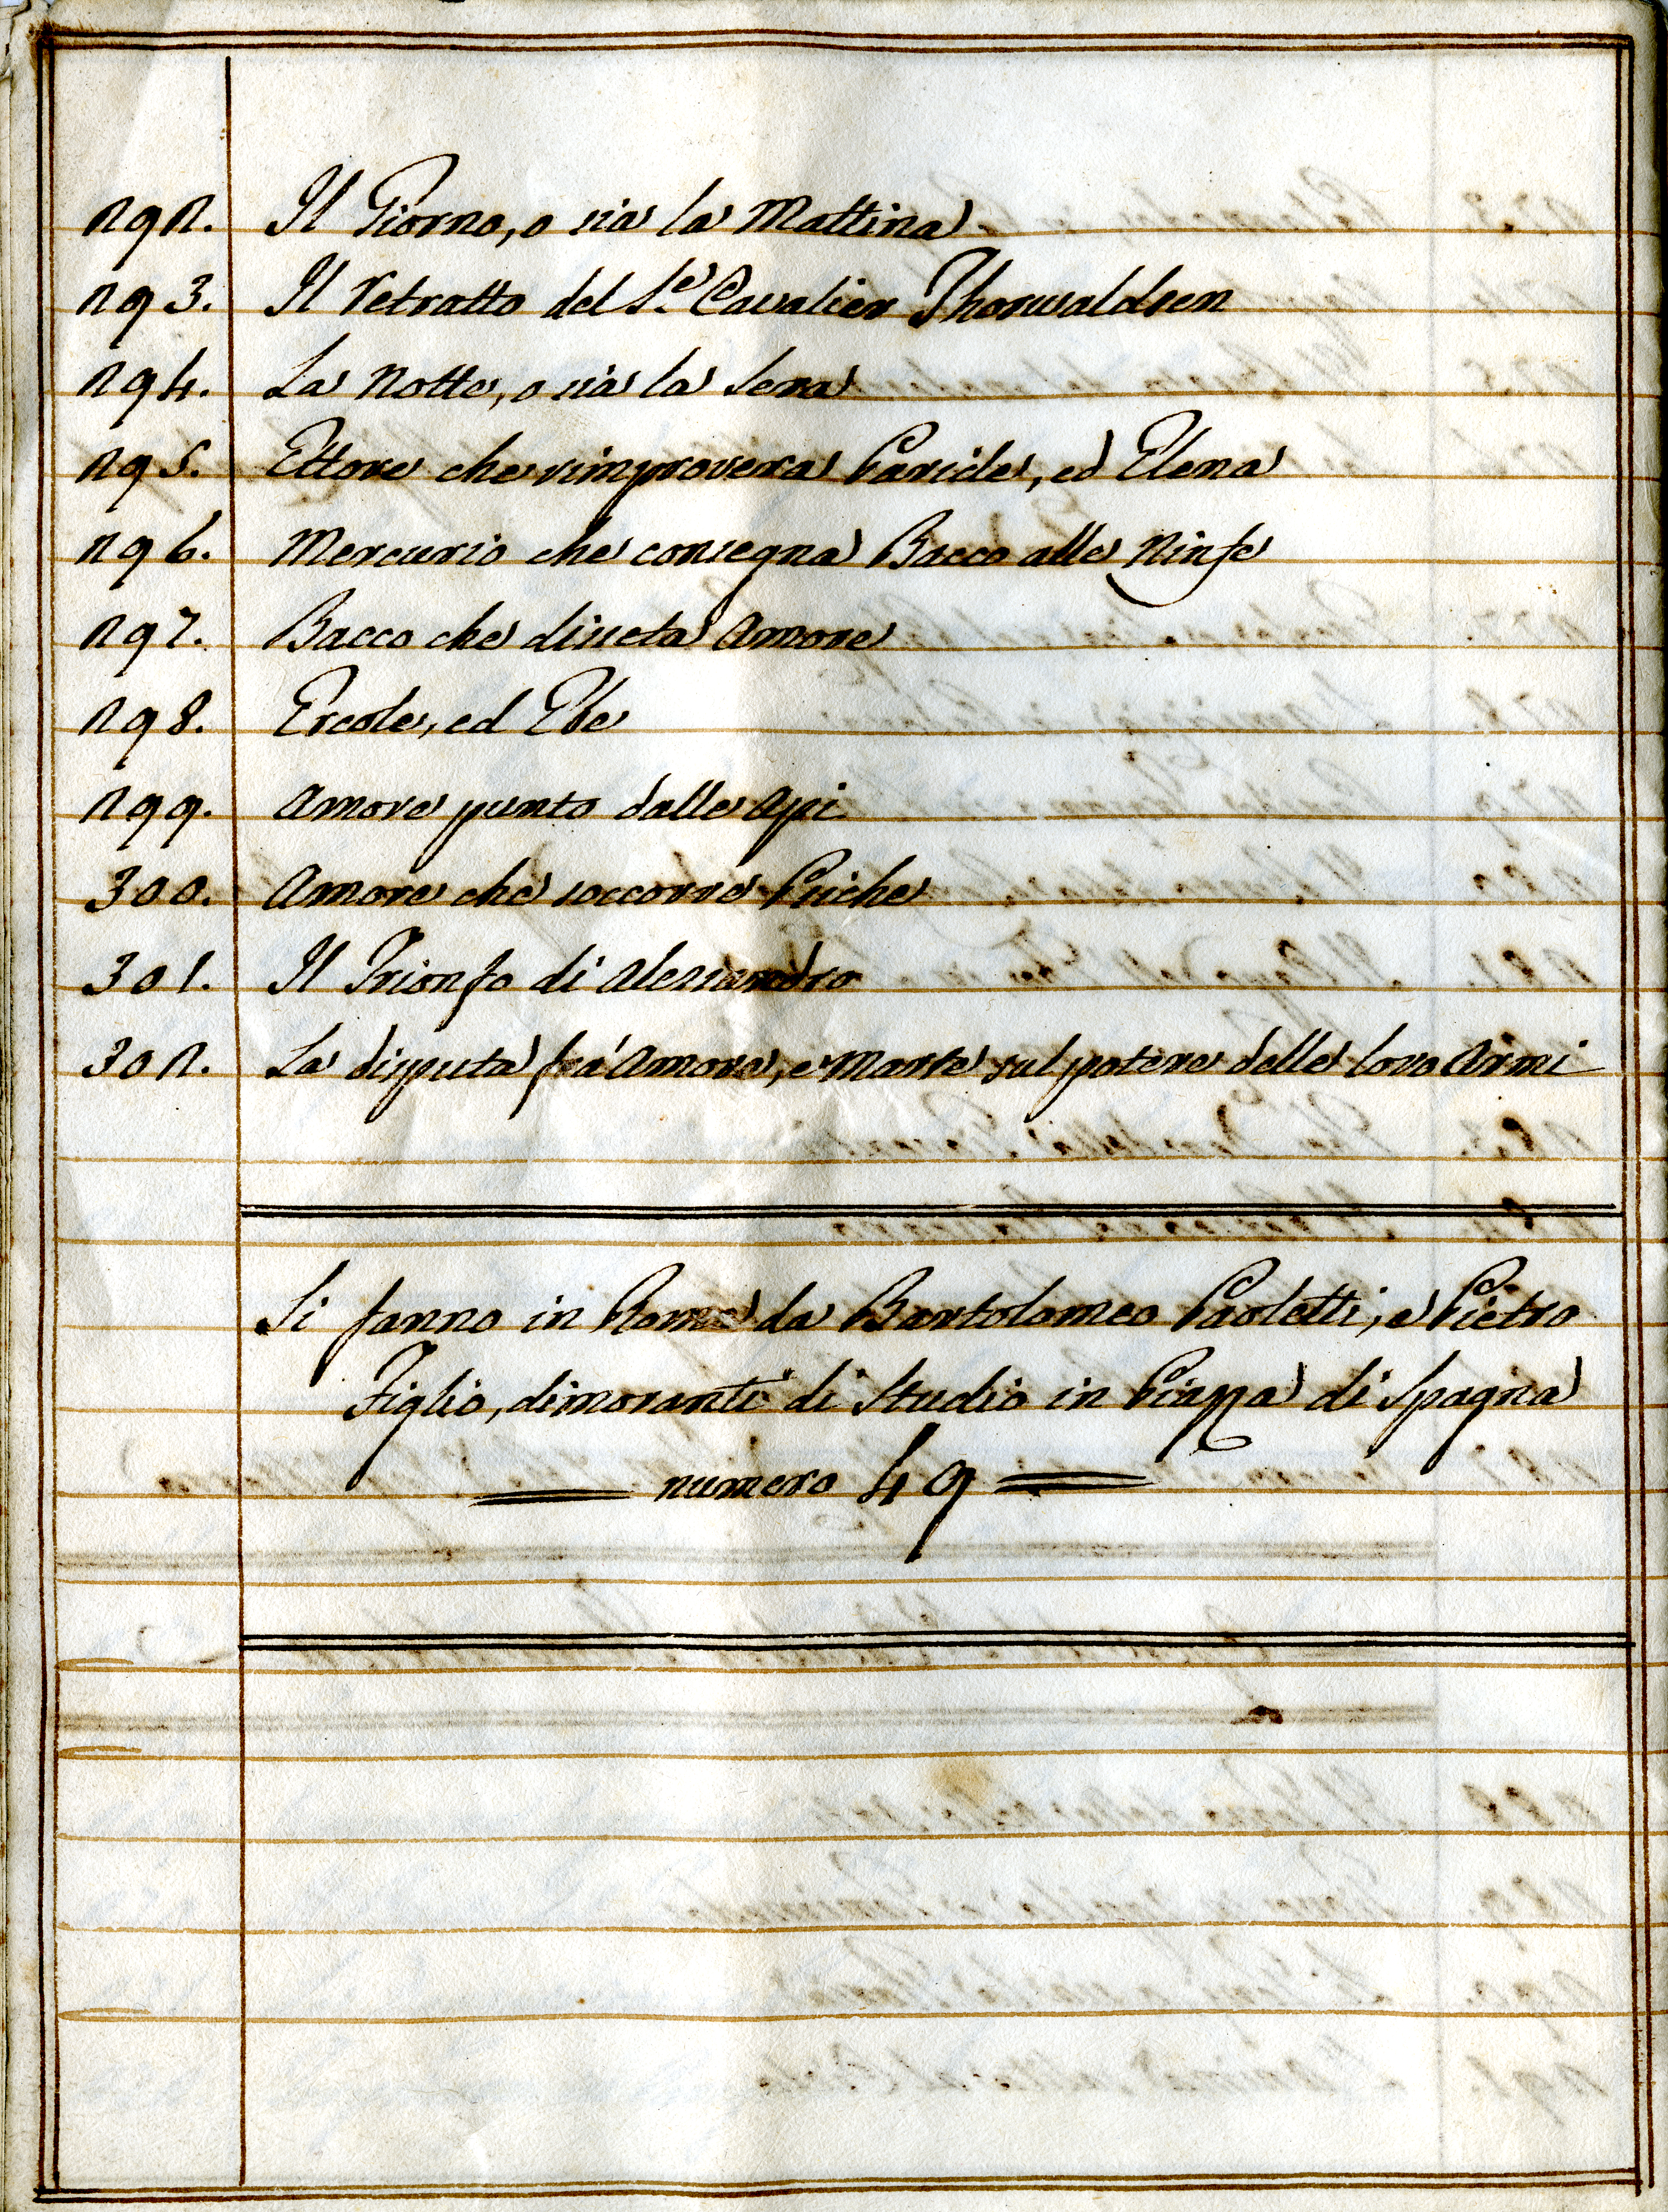 292. Il Giorno, o sia la Mattina
293. Il retratto del S.e Cavalier Thorwaldsen
294. La Notte, o sia la Sera
295. Ettore che rimprovera Paride, ed Elena
296. Mercurio che consegna Bacco alle Ninfe
297. Bacco che disseta Amore
298. Ercole, ed Ebe
299. Amore punto dalle Api
300. Amore che soccorre Psiche
301. Il Trionfo di Alessandro
302. La disputa frà Amore, e Marte sul potere delle loro Armi
Si fanno in Roma da Bartolomeo Paoletti, e Pietro
Figlio, dimoranti di Studio in Piazza di Spagna
numero 49